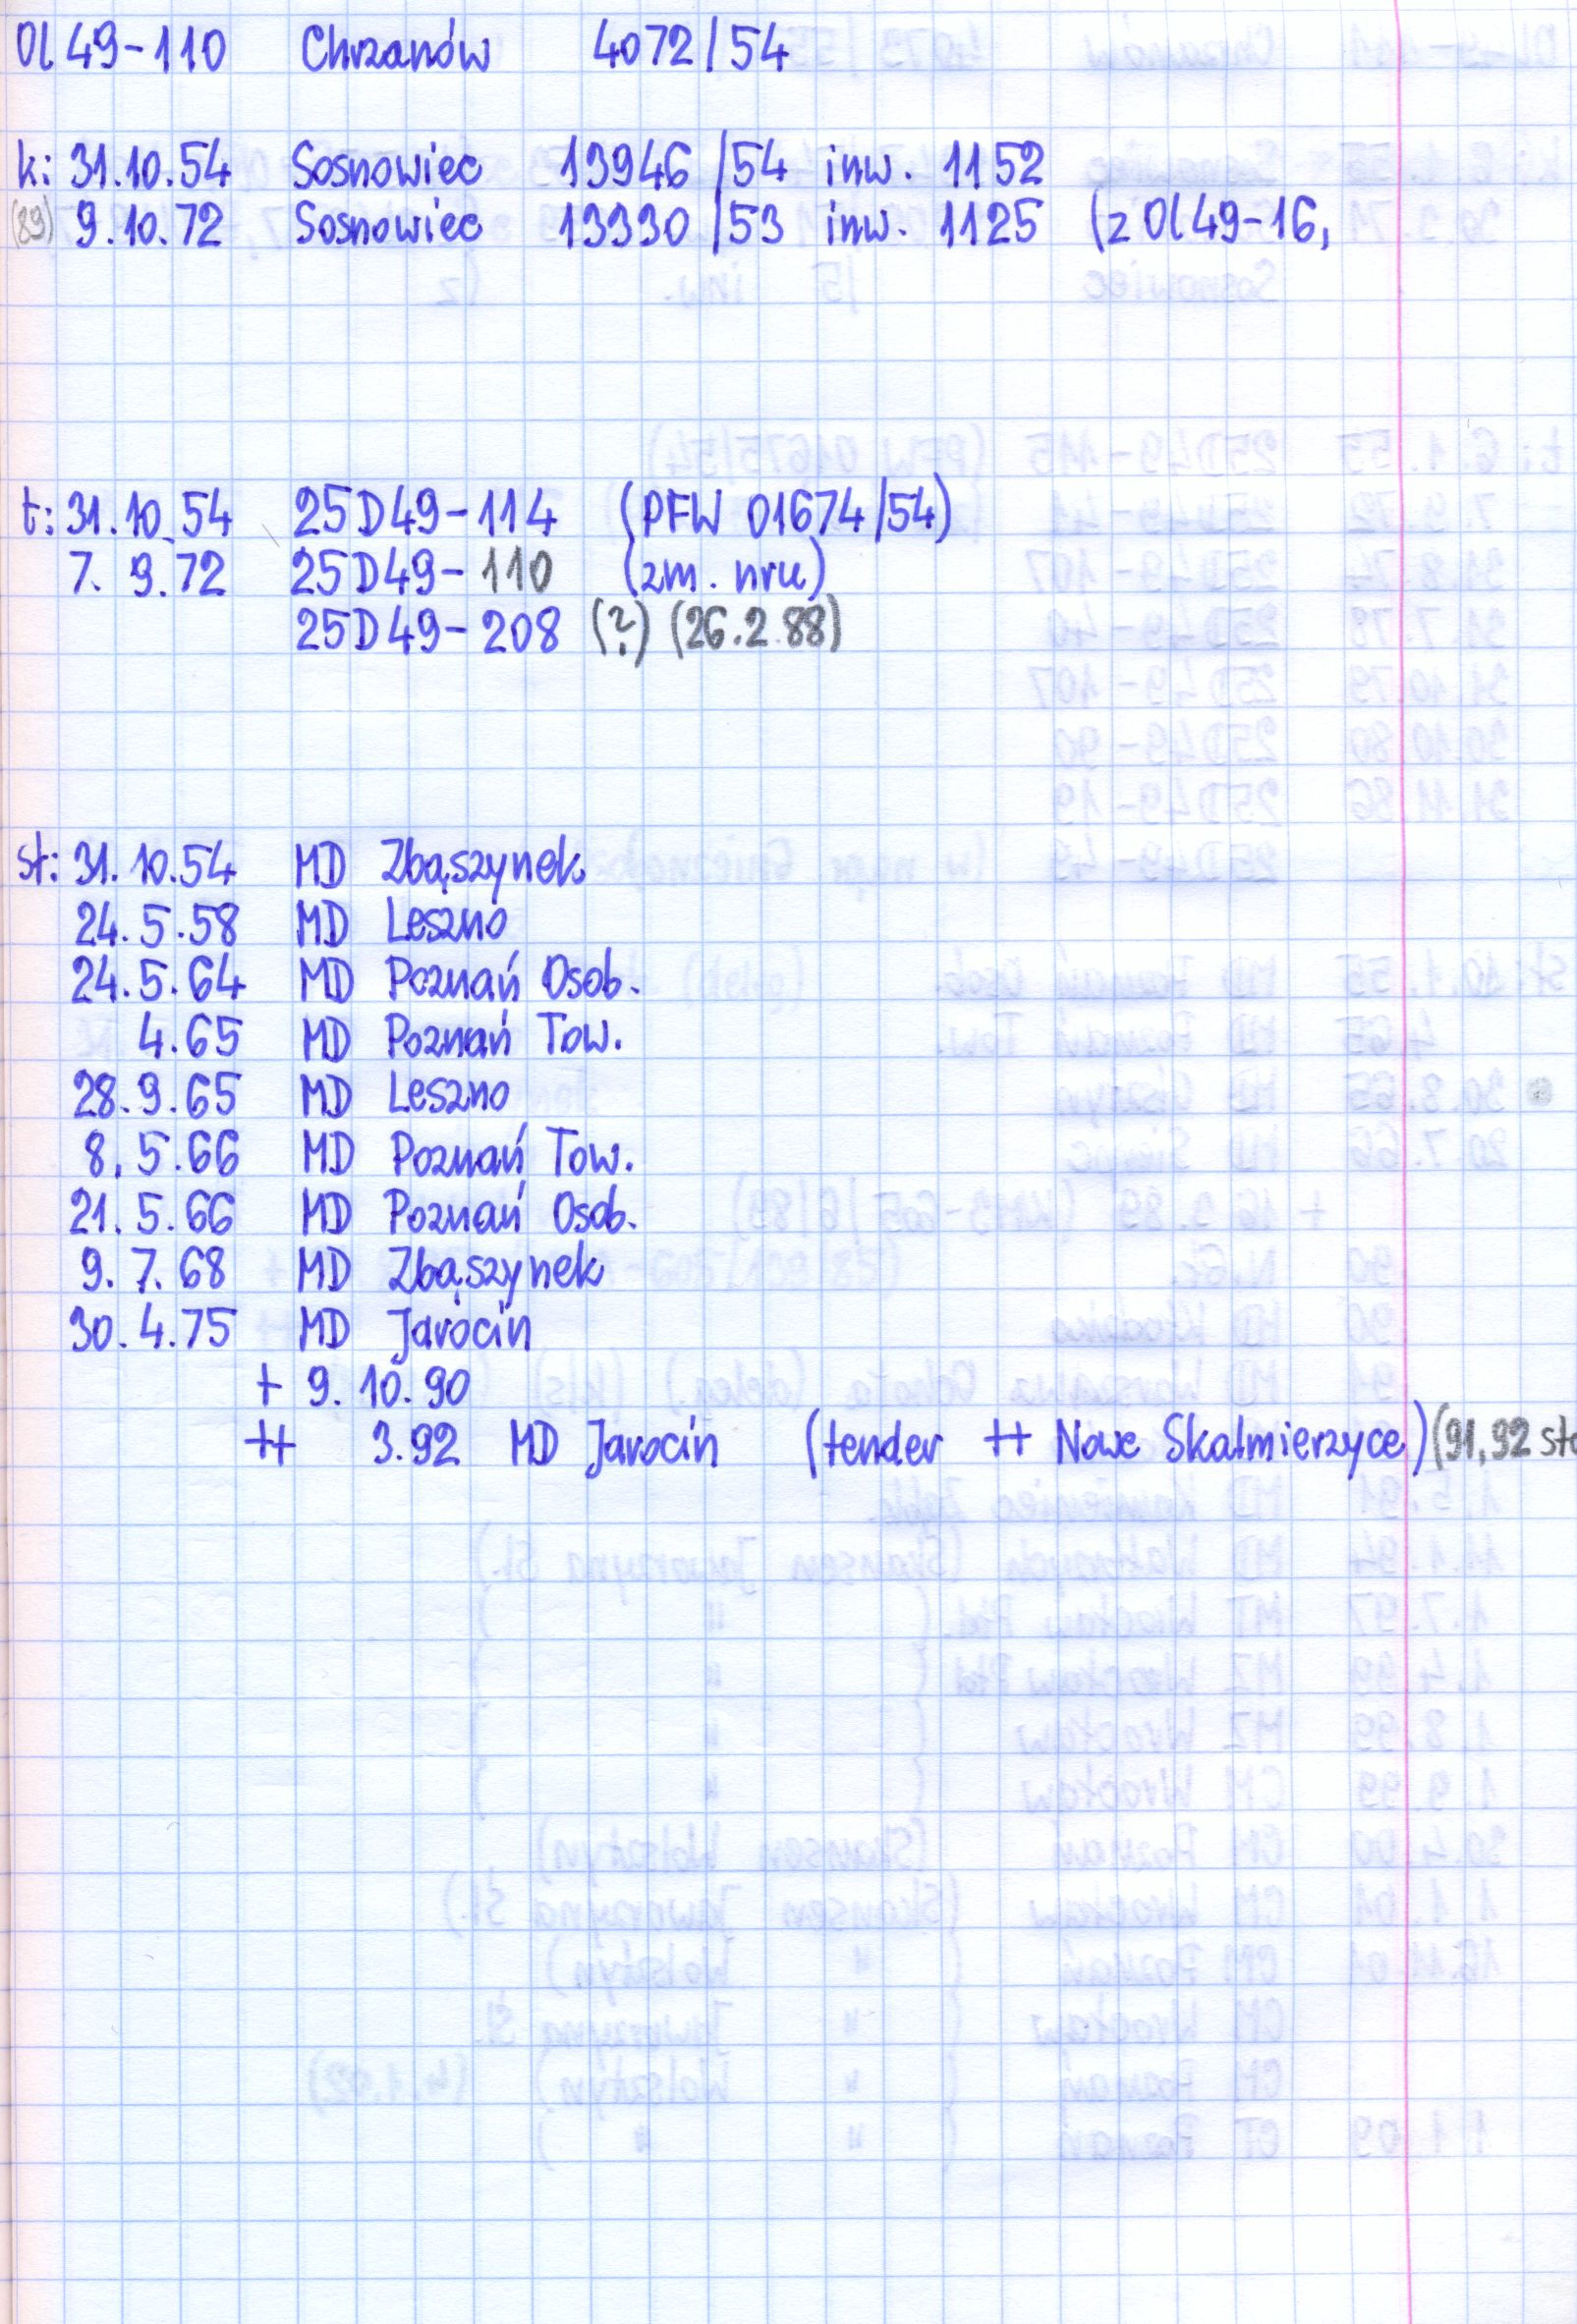 Ol49-110 Chrzanów 4072/54
k: 31.10.54 Sosnowiec 13946/54 inw. 1152
(89) 9.10.72 Sosnowiec 13330/53 inw. 1125 (z Ol49-16,
t: 31.10.54 25D49-114 (PFW 01674/54)
7. 9.72 25D49-110 (zm. nru)
25D49-208 (?) (26.2.88)
st: 31.10.54 MD Zbąszynek
24.5.58 MD Leszno
24.5.64 MD Poznań Osob.
4.65 MD Poznań Tow.
28.9.65 MD Leszno
8.5.66 MD Poznań Tow.
21.5.66 MD Poznań Osob.
9.7.68 MD Zbąszynek
30.4.75 MD Jarocin
+ 9.10.90
++ 3.92 MD Jarocin (tender ++ Nowe Skalmierzyce) (91,92